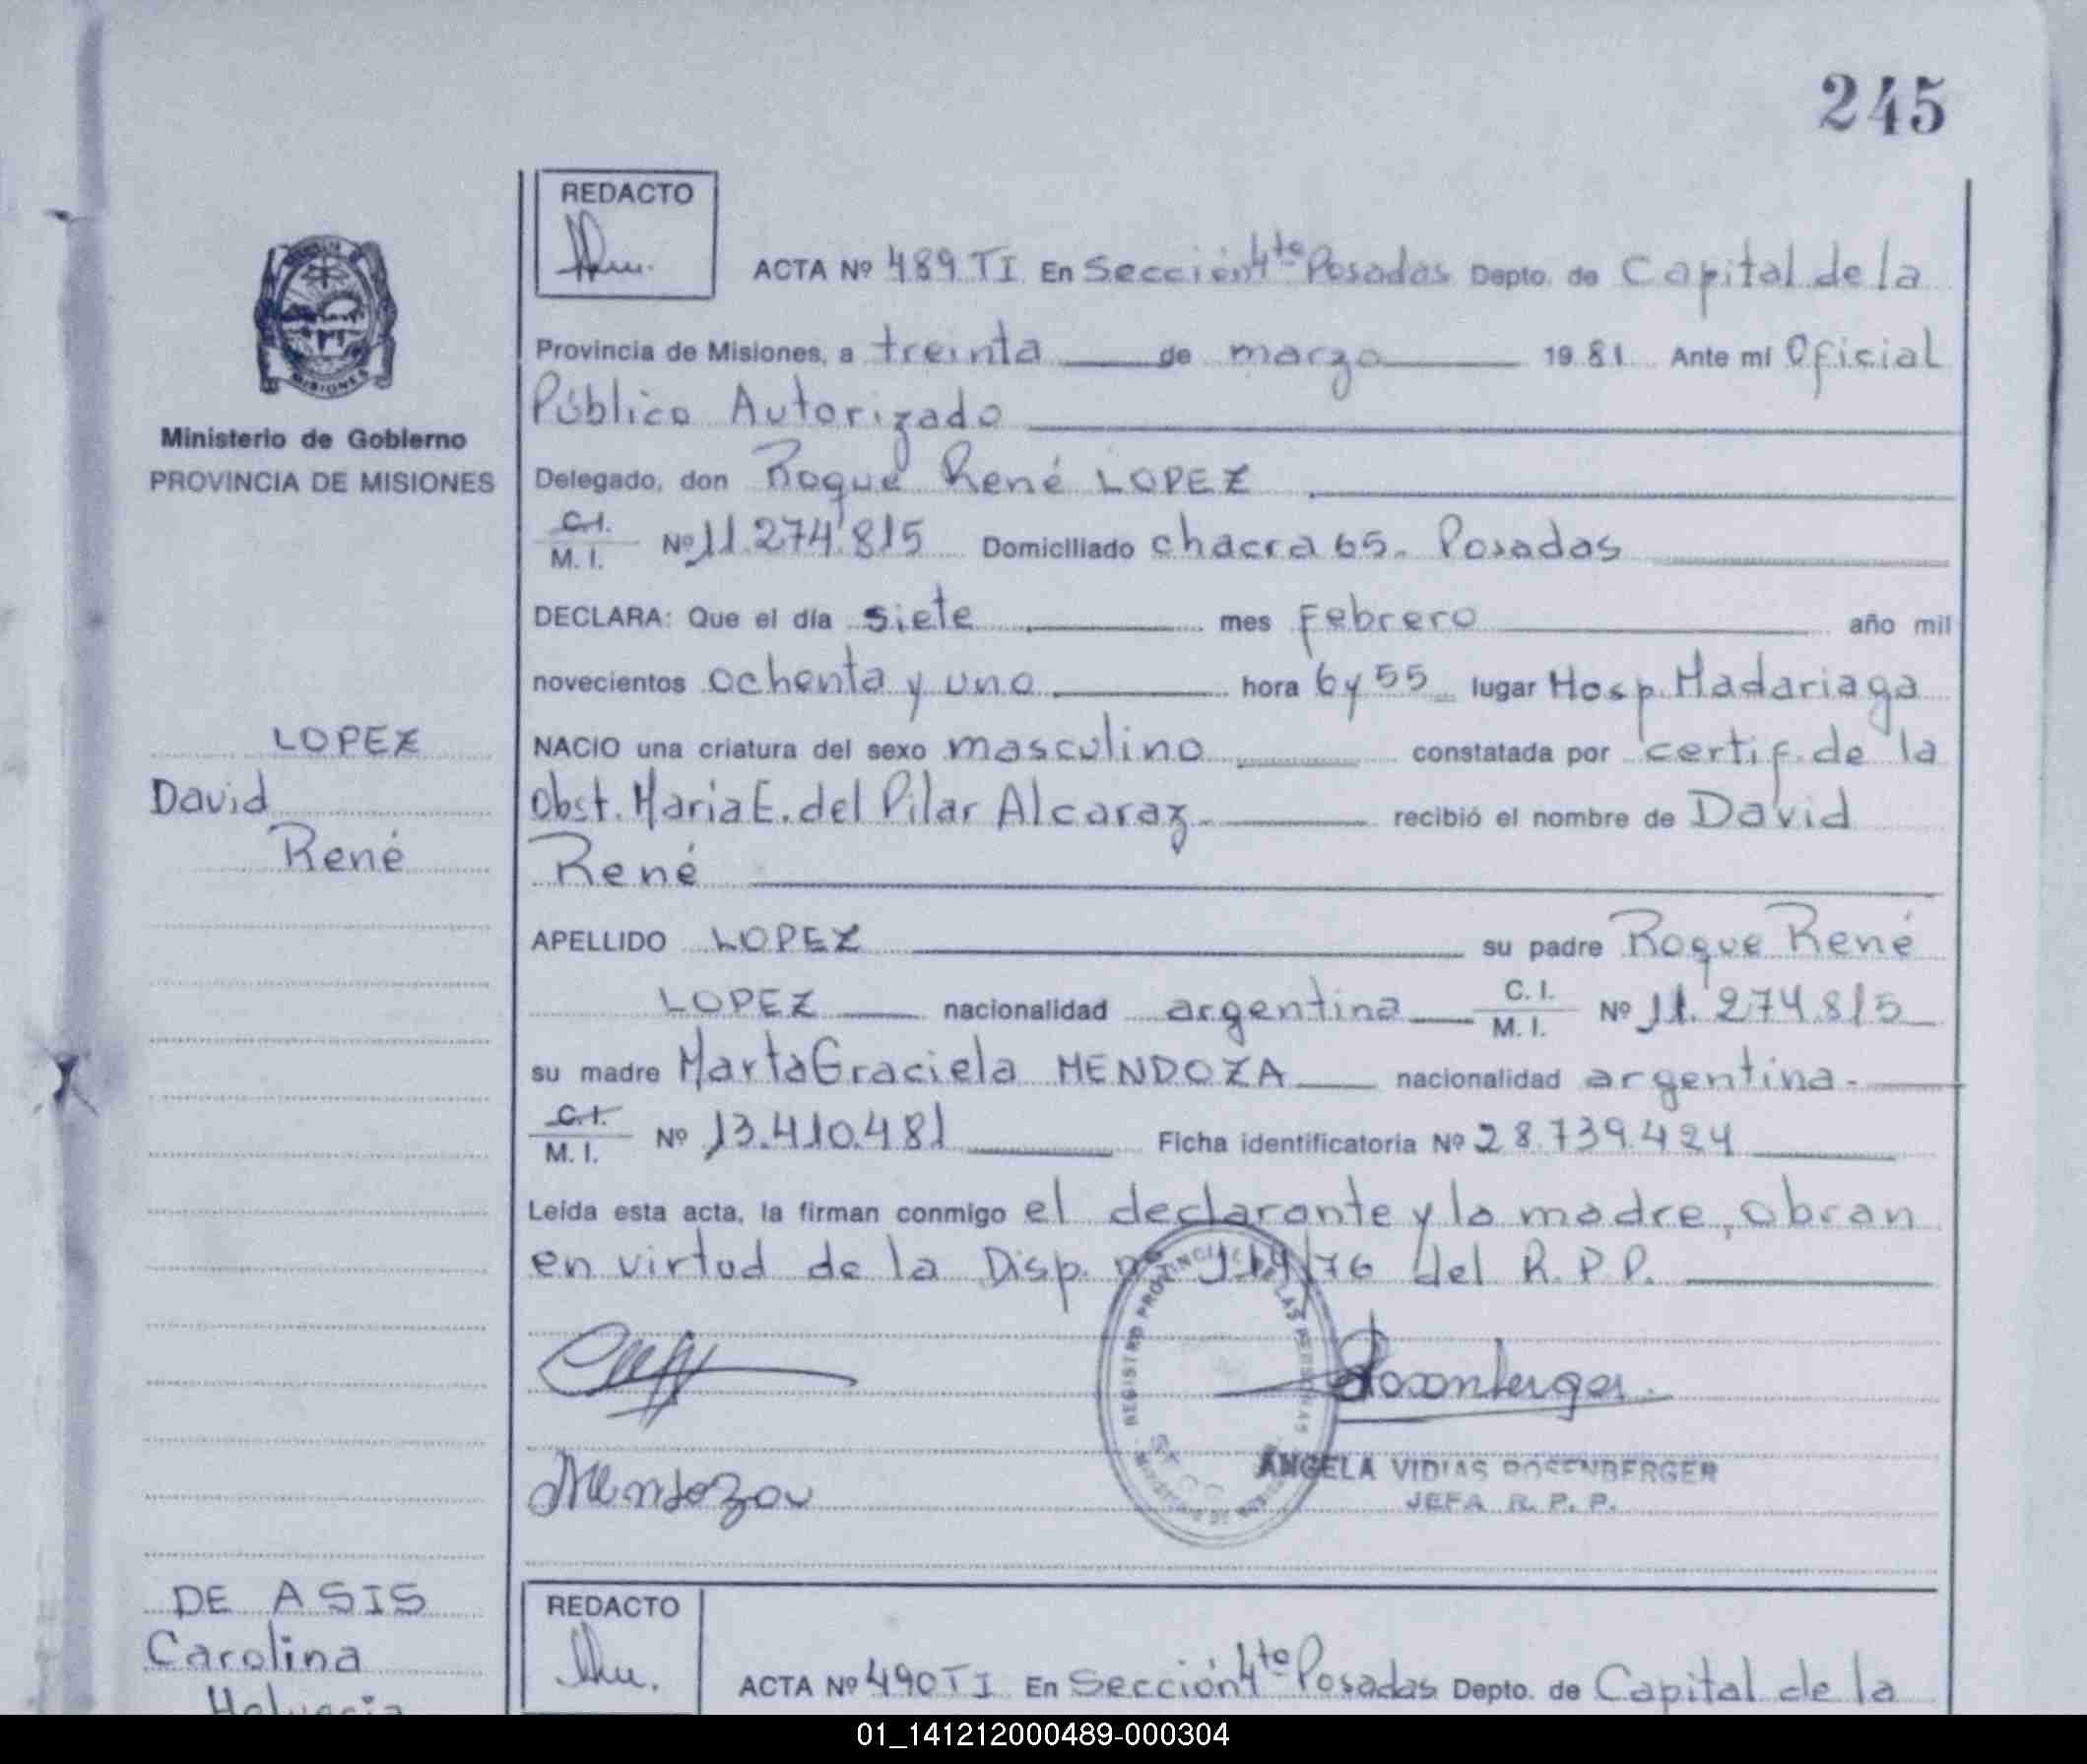 245
REDACTO
ACTA Nº 489 TI En Sección 4ta Posadas Depto. de Capital de la
Provincia de Misiones, a treinta de marzo 1981 Ante mí Oficial
Público Autorizado
Delegado, don Roque René LOPEZ
C.I. M. I. Nº 11.274.815 Domiciliado chacra 65. Posadas
DECLARA: Que el día siete mes Febrero año mil
novecientos ochenta y uno hora 6 y 55 lugar Hosp. Madariaga
NACIO una criatura del sexo masculino constatada por certif. de la
Obst. Maria E. del Pilar Alcaraz.- recibió el nombre de David
René
APELLIDO LOPEZ su padre Roque René
LOPEZ nacionalidad argentina C. I. M. I. Nº 11.274.815
su madre Marta Graciela MENDOZA nacionalidad argentina.-
C.I. M. I. Nº 13.410.481 Ficha identificatoria Nº 28.739.424
Leída esta acta, la firman conmigo el declarante y la madre, obran
en virtud de la Disp. nº 114/76 del R.P.P.
REGISTRO PROVINCIAL DE LAS PERSONAS
Rosenberger
Mendoza
ANGELA VIDIAS ROSENBERGER
JEFA R. P. P.
MISIONES
Ministerio de Gobierno
PROVINCIA DE MISIONES
LOPEZ
David
René
DE ASIS
Carolina
REDACTO
ACTA Nº 490 TI En Sección 4ta Posadas Depto. de Capital de la
01_141212000489-000304